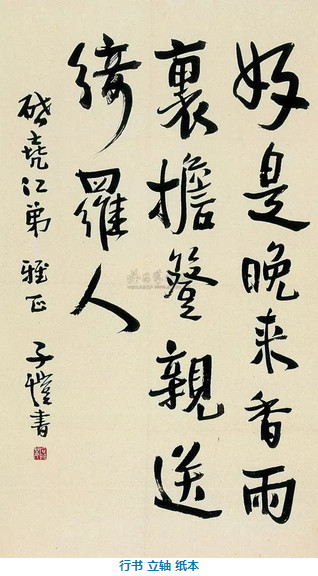 好是晚来香雨
裏擔簦親送
綺羅人
堯仁弟 雅正 子愷書
行书 立轴 纸本